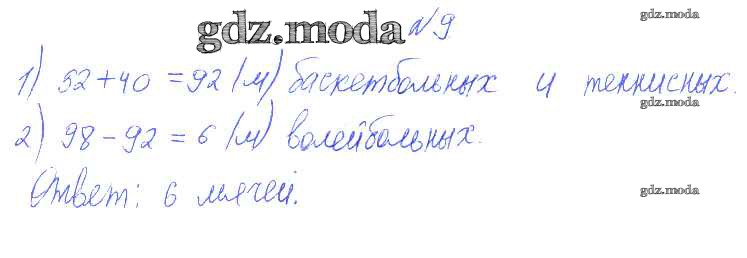 gdz.moda
gdz.moda №9
1) 52+40 =92 (м) баскетбольных и теннисных.
gdz.moda
2) 98-92 = 6 (м) волейбольных.
Ответ: 6 мячей.
gdz.moda